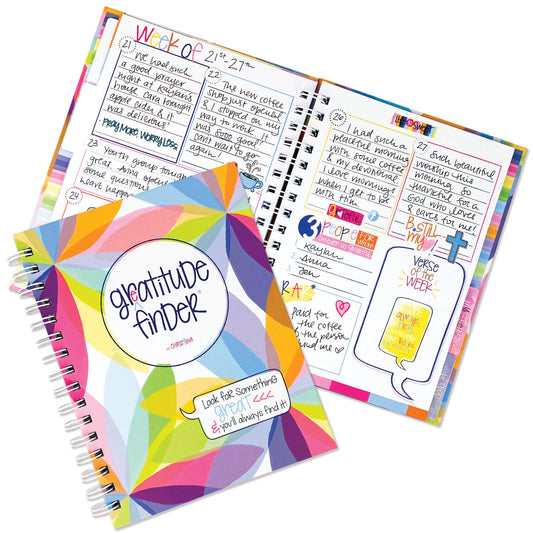 Week of 21st-27th
21
We had such
a good prayer
night at Kaylan's
house. Cara brought
apple cider & it
was delicious!
PRAY MORE WORRY LESS
22
The new coffee
shop just opened
& I stopped on my
way to work. It
was sooo good!
Can't wait to go
again!
23 Youth group tonight
great. Anna opened
some
questions
leave happy
24
26
I had such a
peaceful morning
with some coffee
& my devotional.
I love mornings
when I get to be
with Him.
27
Such beautiful
worship this
morning. So
thankful for a
God who loves
& cares for me!
3 PEOPLE
FOR WHOM
Kaylan
Anna
Jen
BE STILL
my
paid for
the coffee
of the person
behind me
VERSE
OF THE
WEEK
greatitude
finder®
by CHRISTINA
Look for something
great <<<
& you'll always find it!